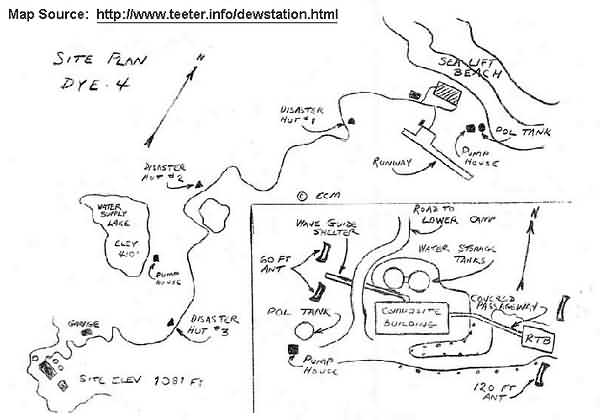 Map Source: http://www.teeter.info/dewstation.html
SITE PLAN
DYE-4
N
SEA LIFT
BEACH
DISASTER
HUT #1
POL TANK
PUMP
HOUSE
RUNWAY
DISASTER
HUT #2
© ECM
WATER
SUPPLY
LAKE
ELEV
410'
PUMP
HOUSE
GARAGE
DISASTER
HUT #3
SITE ELEV 1081 FT
ROAD TO
LOWER CAMP
WAVE GUIDE
SHELTER
N
WATER STORAGE
TANKS
60 FT
ANT
COVERED
PASSAGEWAY
POL TANK
COMPOSITE
BUILDING
RTB
PUMP
HOUSE
120 FT
ANT